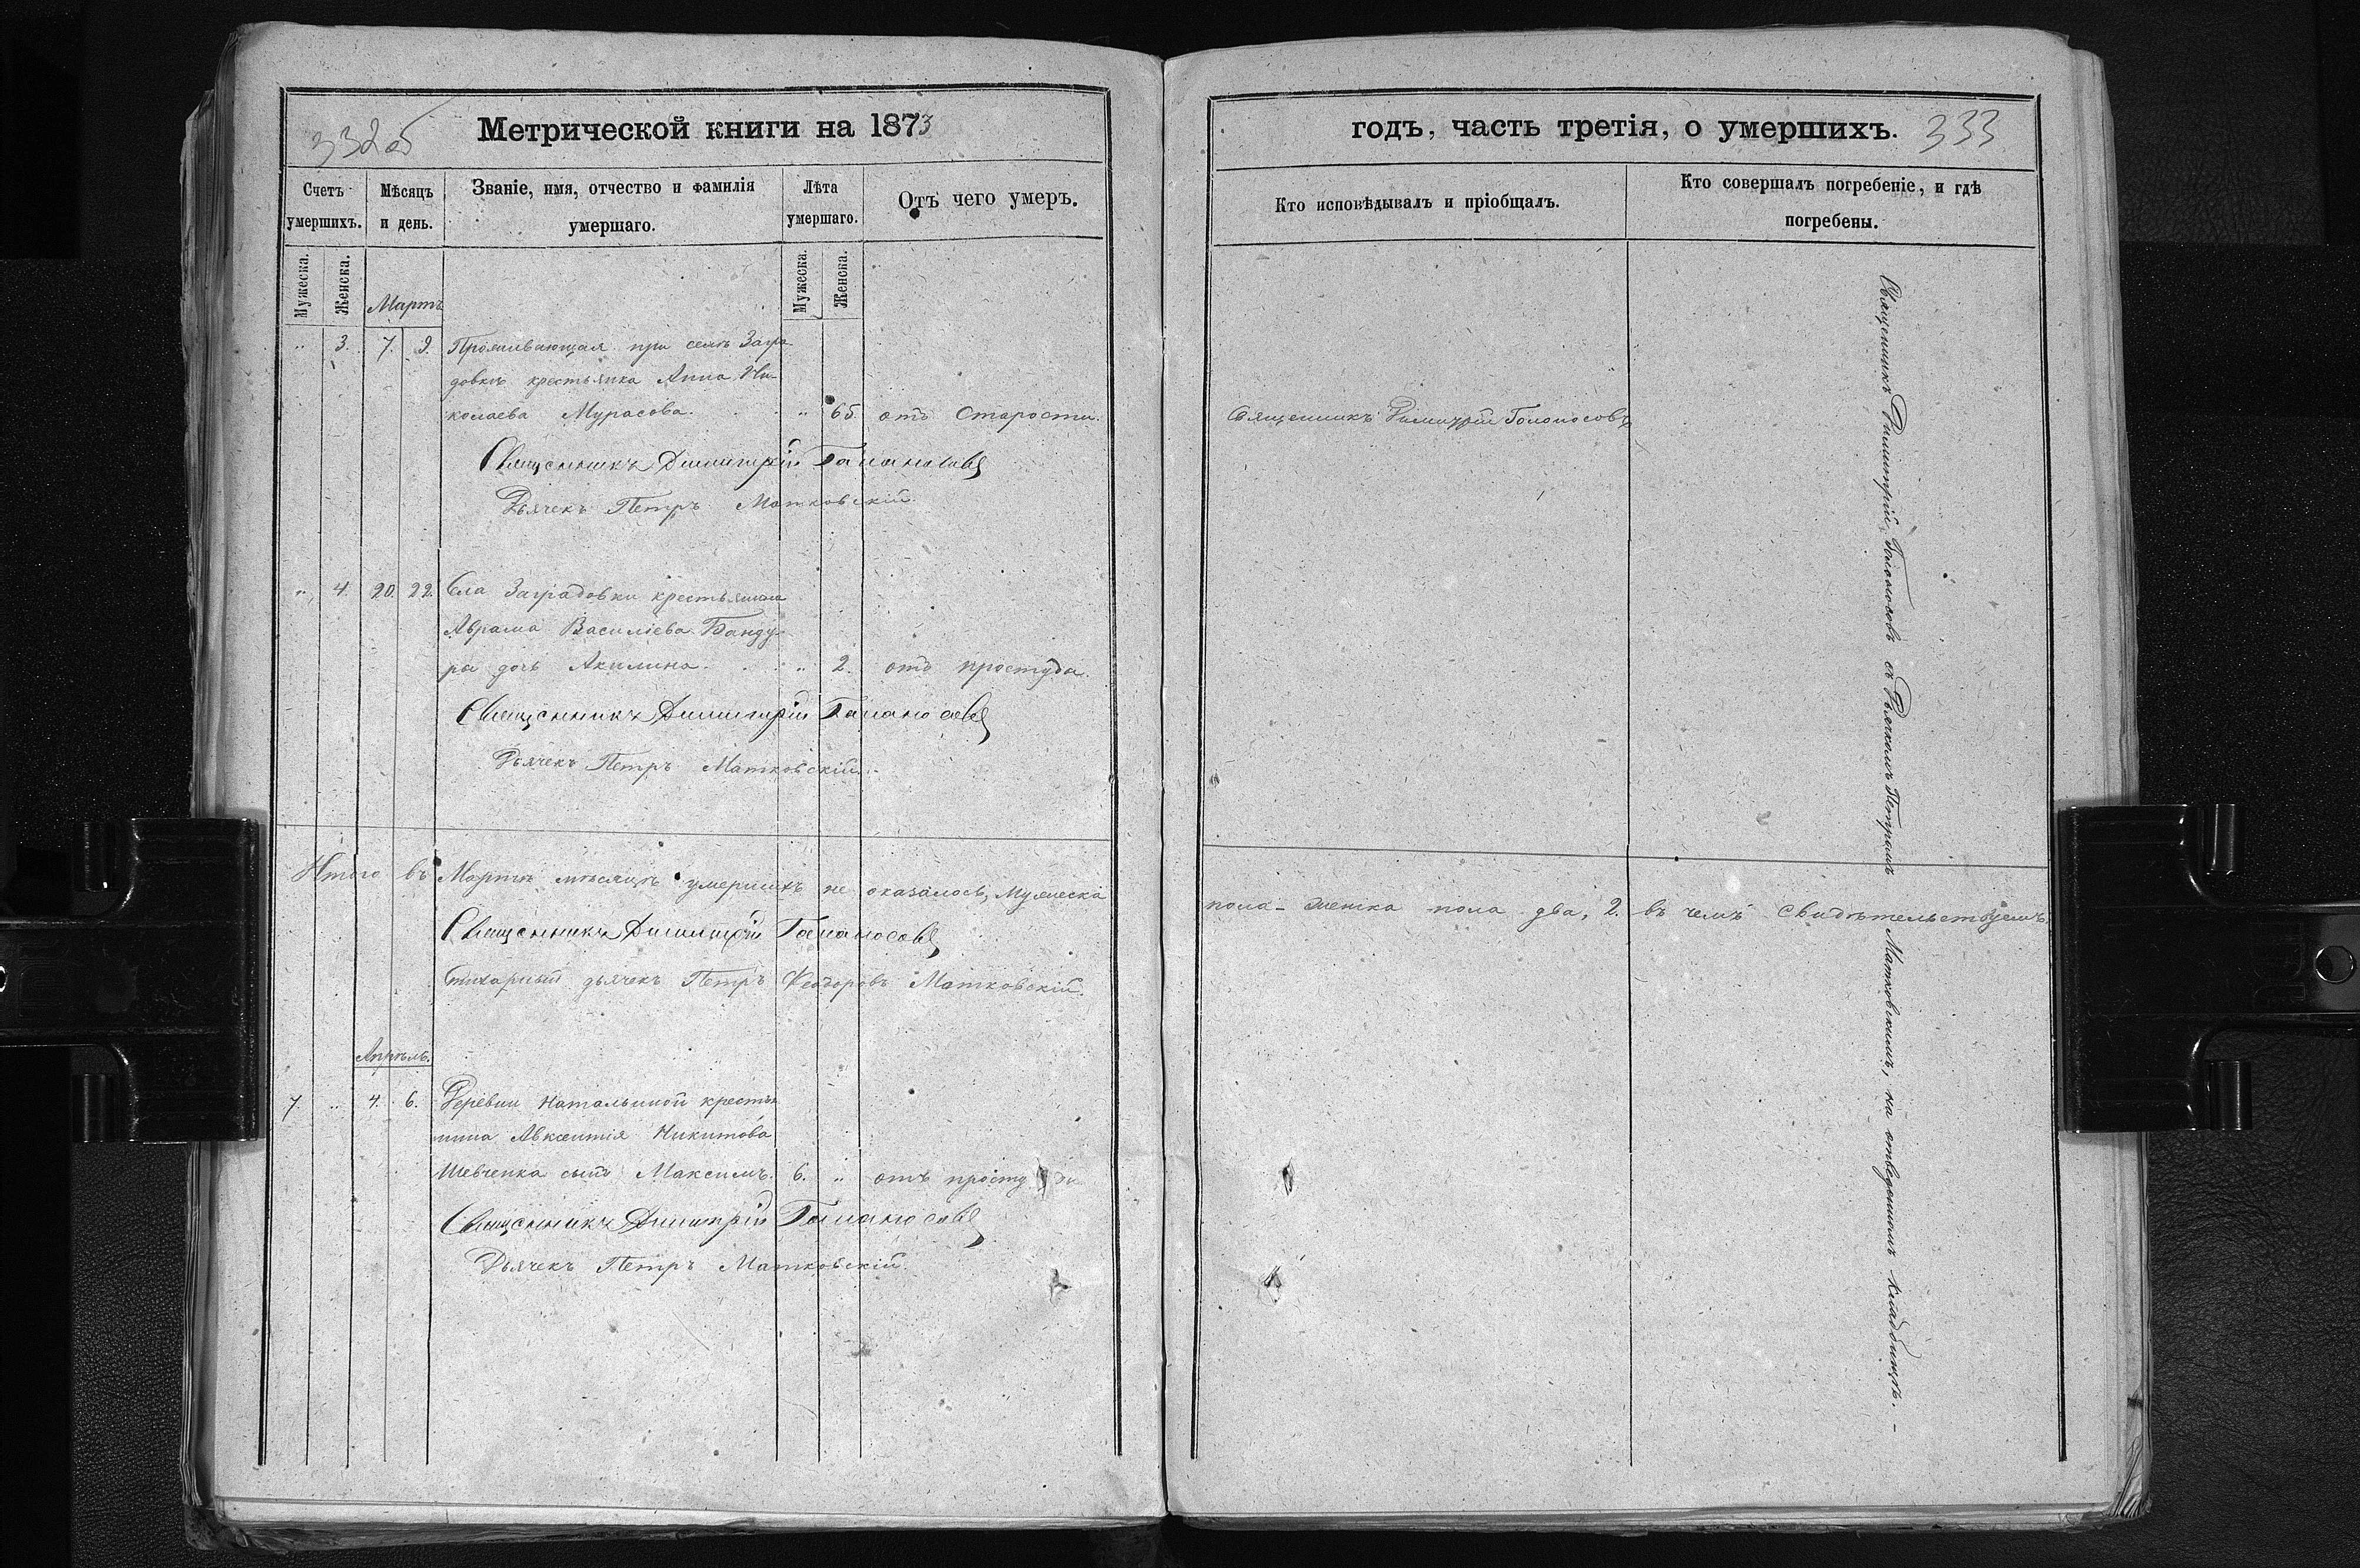 332об
Метрической книги на 1873
Счетъ умершихъ.
Мѣсяцъ и день.
Званіе, имя, отчество и фамилія умершаго.
Лѣта умершаго.
Отъ чего умеръ.
Мужеска.
Женска.
Мужеска.
Женска.
Мартъ
" 3. 7. 9. Проживающая при селѣ Загра
довкѣ крестьянка Анна Ни-
колаева Мурасова. " 65 отъ старости.
Священникъ Димитрій Голоносовъ
Дьячекъ Петръ Матковскій.
" 4. 20. 22. Села Заградовки крестьянина
Аврама Василіева Банду-
ры дочь Акилина. " 2. отъ простуды.
Священникъ Димитрій Голоносовъ
Дьячекъ Петръ Матковскій.
Итого въ Мартѣ мѣсяцѣ умершихъ не оказалось, Мужеска
Священникъ Димитрій Голоносовъ
Стихарный дьячекъ Петръ Феодоровъ Матковскій.
Апрѣль.
7. " 4. 6. Деревни Натальиной крестья
нина Авксентія Никитова
Шевченка сынъ Максимъ. 6. " отъ простуды
Священникъ Димитрій Голоносовъ
Дьячекъ Петръ Матковскій.
годъ, часть третія, о умершихъ. 333
Кто исповѣдывалъ и пріобщалъ.
Кто совершалъ погребеніе, и гдѣ
погребены.
Священникъ Димитрій Голоносовъ
пола - женска пола два, 2. въ чемъ свидѣтельствуемъ
Священникъ Димитрій Голоносовъ съ Дьячкомъ Петромъ Матковскимъ, на отведенномъ кладбищѣ. -